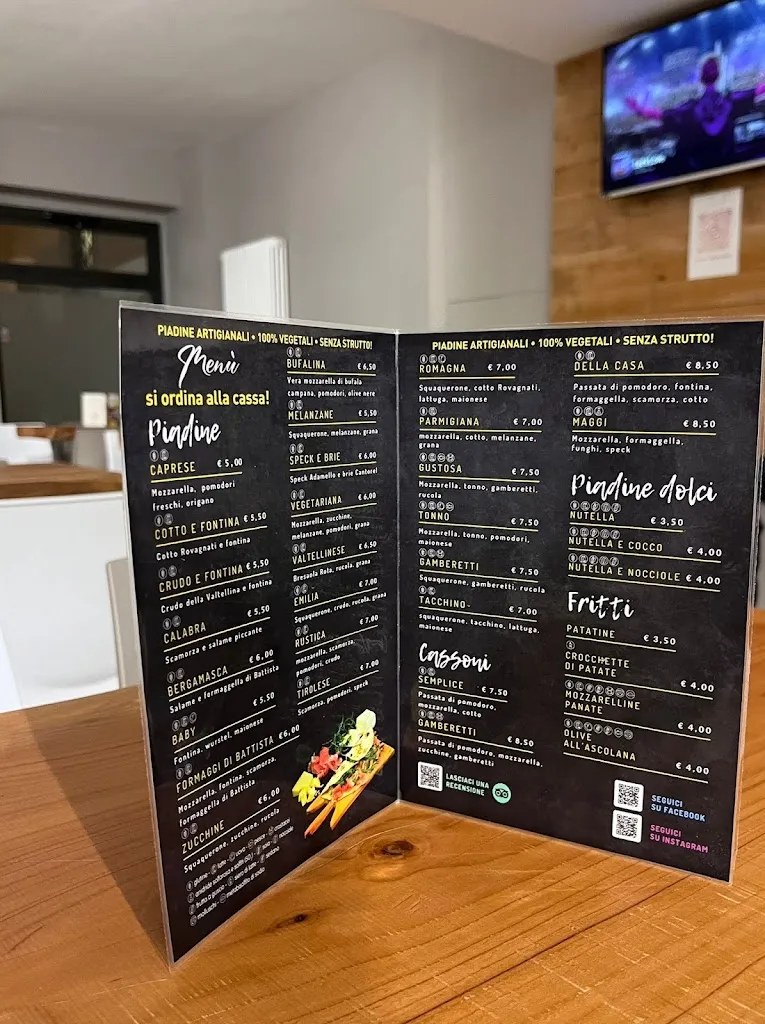 PIADINE ARTIGIANALI • 100% VEGETALI • SENZA STRUTTO!
Menù
si ordina alla cassa!
Piadine
CAPRESE € 5,00
Mozzarella, pomodori
freschi, origano
COTTO E FONTINA € 5,50
Cotto Rovagnati e fontina
CRUDO E FONTINA € 5,50
Crudo della Valtellina e fontina
CALABRA € 5,50
Scamorza e salame piccante
BERGAMASCA € 6,00
Salame e formaggella di Battista
BABY € 5,50
Fontina, wurstel, maionese
FORMAGGI DI BATTISTA €6,00
Mozzarella, fontina, scamorza,
Formaggella di Battista
ZUCCHINE €6,00
Squaquerone, zucchine, rucola
BUFALINA € 6,50
Vera mozzarella di bufala
campana, pomodori, olive nere
MELANZANE € 5,50
Squaquerone, melanzane, grana
SPECK E BRIE € 6,00
Speck Adamello e brie Cantorel
VEGETARIANA € 6,00
Mozzarella, zucchine,
melanzane, pomodori, grana
VALTELLINESE € 6,50
Bresaola Rota, rucola, grana
EMILIA € 7,00
Squaquerone, crudo, rucola, grana
RUSTICA € 7,00
mozzarella, scamorza,
pomodori, crudo
TIROLESE € 7,00
Scamorza, pomodori, speck
PIADINE ARTIGIANALI • 100% VEGETALI • SENZA STRUTTO!
ROMAGNA € 7,00
Squaquerone, cotto Rovagnati,
lattuga, maionese
PARMIGIANA € 7,00
mozzarella, cotto, melanzane,
grana
GUSTOSA € 7,50
Mozzarella, tonno, gamberetti,
rucola
TONNO € 7,50
Mozzarella, tonno, pomodori,
maionese
GAMBERETTI € 7,50
Squaquerone, gamberetti, rucola
TACCHINO € 7,00
squaquerone, tacchino, lattuga,
maionese
Cassoni
SEMPLICE € 7,50
Passata di pomodoro,
mozzarella, cotto
GAMBERETTI € 8,50
Passata di pomodoro, mozzarella,
zucchine, gamberetti
LASCIACI UNA
RECENSIONE
DELLA CASA € 8,50
Passata di pomodoro, fontina,
formaggella, scamorza, cotto
MAGGI € 8,50
Mozzarella, formaggella,
funghi, speck
Piadine dolci
NUTELLA € 3,50
NUTELLA E COCCO € 4,00
NUTELLA E NOCCIOLE € 4,00
Fritti
PATATINE € 3,50
CROCCHETTE
DI PATATE € 4,00
MOZZARELLINE
PANATE € 4,00
OLIVE
ALL'ASCOLANA € 4,00
SEGUICI
SU FACEBOOK
SEGUICI
SU INSTAGRAM